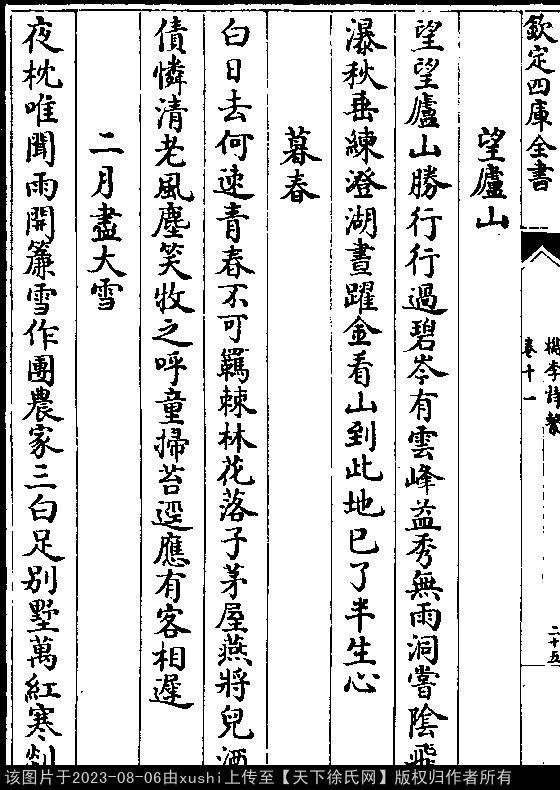 欽定四庫全書
檇李詩繫
卷十一
二十五
望廬山
望望廬山勝行行過碧岑有雲峰益秀無雨洞嘗陰飛
瀑秋垂練澄湖晝躍金看山到此地已了半生心
暮春
白日去何速青春不可羈棘林花落子茅屋燕將兒酒
債憐清老風塵笑牧之呼童掃苔逕應有客相遲
二月盡大雪
夜枕唯聞雨開簾雪作團農家三白足别墅萬紅寒剡
该图片于2023-08-06由xushi上传至【天下徐氏网】版权归作者所有